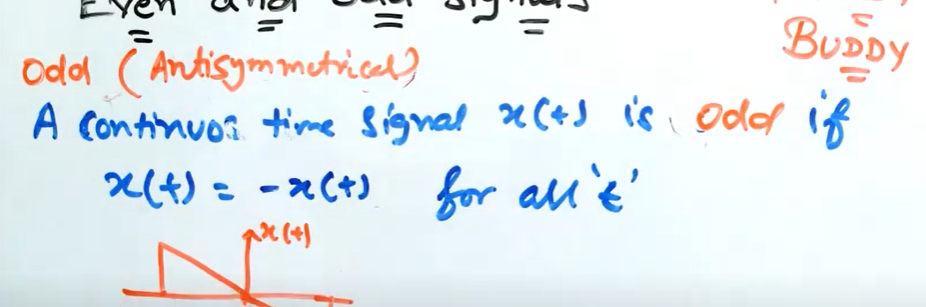 Even and odd signals
BUDDY
Odd (Antisymmetrical)
A Continuos time Signal x(t) is Odd if
x(t) = -x(t) for all 't'
x(t)